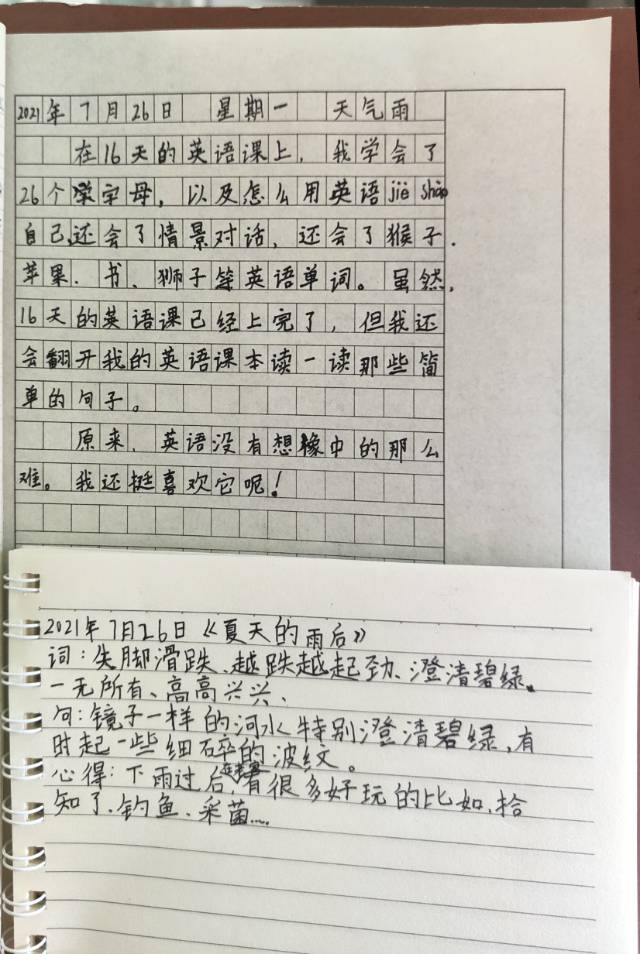 2021年7月26日 星期一 天气雨
在16天的英语课上，我学会了
26个字母，以及怎么用英语jiè shào
自己，还会了情景对话，还会了猴子、
苹果、书、狮子等英语单词。虽然，
16天的英语课已经上完了，但我还
会翻开我的英语课本读一读那些简
单的句子。
原来，英语没有想橡中的那么
难。我还挺喜欢它呢！
2021年7月26日《夏天的雨后》
词：失脚滑跌、越跌越起劲、澄清碧绿、
一无所有、高高兴兴、
句：镜子一样的河水特别澄清碧绿，有
时起一些细碎的波纹。
心得：下雨过后，有很多好玩的比如，拾
知了、钓鱼、采菌……